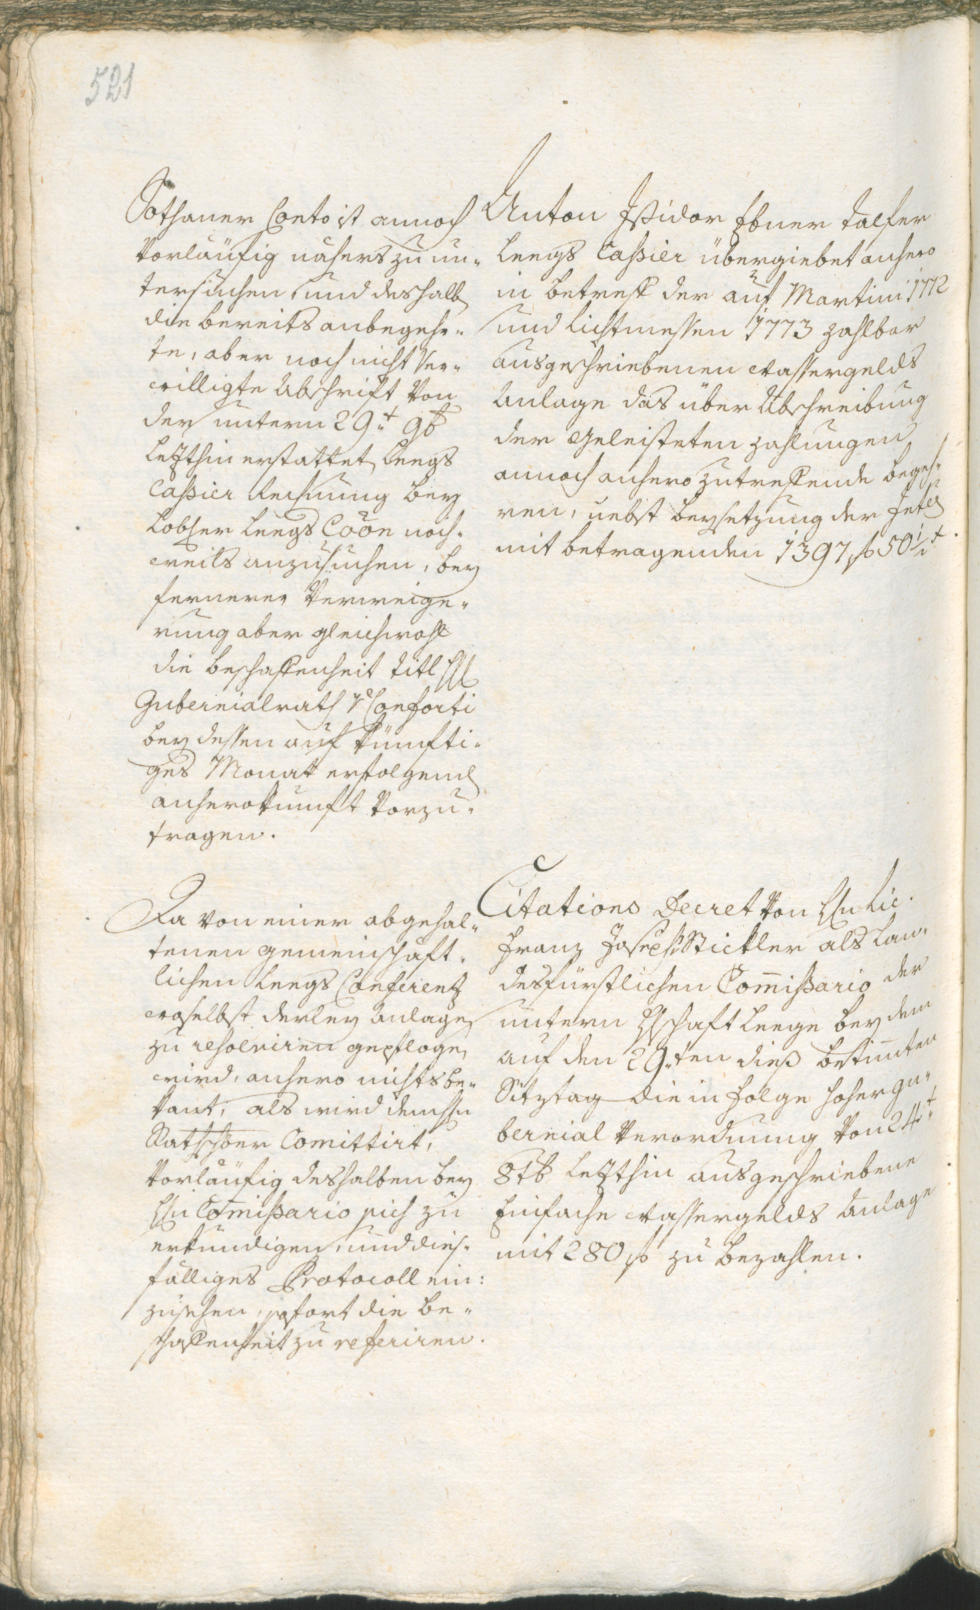 521
Sothaner Conto ist annoch
vorläufig näherszu un-
tersuchen, und deshalb
die bereits anbegehr-
te, aber noch nicht ver-
willigte Abschrift von
der untern 29.t 9b
letzthin erstattet Leegs
Cassier Rechnung bey
Lobser Leegs Coon noch-
weils anzusuchen, bey
fernerer Verweige-
rung aber gleichwohl
die beschaffenheit titl
Gubernialrath v Conforti
bey dessen auf künfti-
ges Monat erfolgend
anherokunft vorzu-
tragen.
Anton Isidor Ebner Talfer
Leegs Cassier übergiebet anhero
in betreff der auf Martini 1772
und Lichtmessen 1773 zahlbar
ausgeschriebenen Wassergelds
Anlage das über Abschreibung
der geleisteten Zahlungen
annoch anhero zutreffende begeh-
ren, nebst beysetzung der
mit betragenden 1397 f 50
Da von einer abgehal-
tenen gemeinschaft-
lichen Leegs Conferenz
woselbst derley Anlagen
zu resolviren gepflogen
wird, anhero nichts be-
kant, als wird dem Hn
Comittirt,
vorläufig deshalben bey
Hn Comissario sich zu
erkundigen, und dies-
fälliges Protocoll ein:
zusehen, sofort die be-
schaffenheit zu referiren.
Citations Decret von Hn Lic.
Franz Joseph Stickler als Lan-
desfürstlichen Comissario der
untern Hschaft Leege bey dem
auf den 29.ten dieß bestimten
Sitztag die in folge hoher gu-
bernial Verordnung von 24.t
8tb letzthin ausgeschriebene
Einfache Wassergelds Anlage
mit 280 f zu bezahlen.